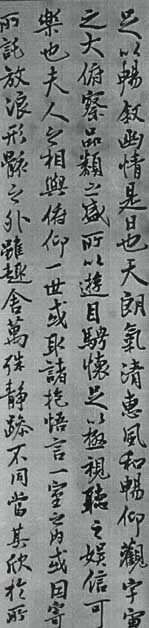 足以暢敘幽情是日也天朗氣清惠風和暢仰觀宇宙
之大俯察品類之盛所以遊目騁懷足以極視聽之娛信可
樂也夫人之相與俯仰一世或取諸懷抱悟言一室之內或因寄
所託放浪形骸之外雖趣舍萬殊靜躁不同當其欣於所